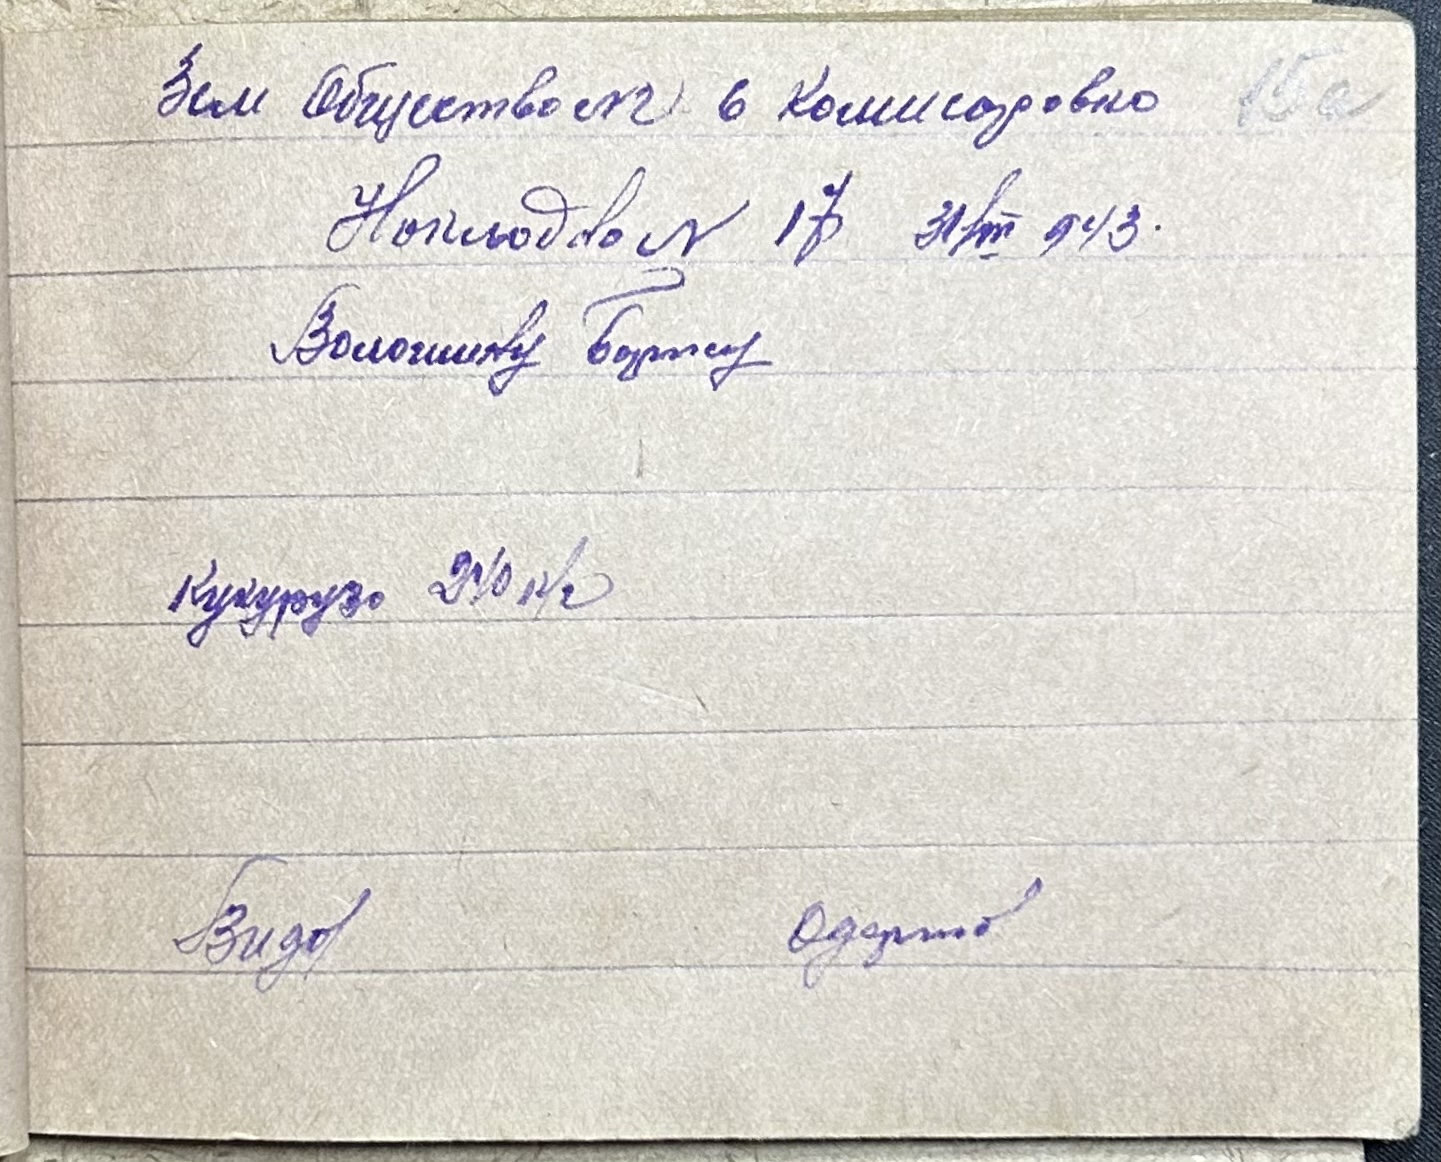 Зем Общество №2 в Комисаровка 15а
Накладная № 17 31/VIII 943.
Волошину Борису
Кукуруза 240 к/г
Видал Одержав